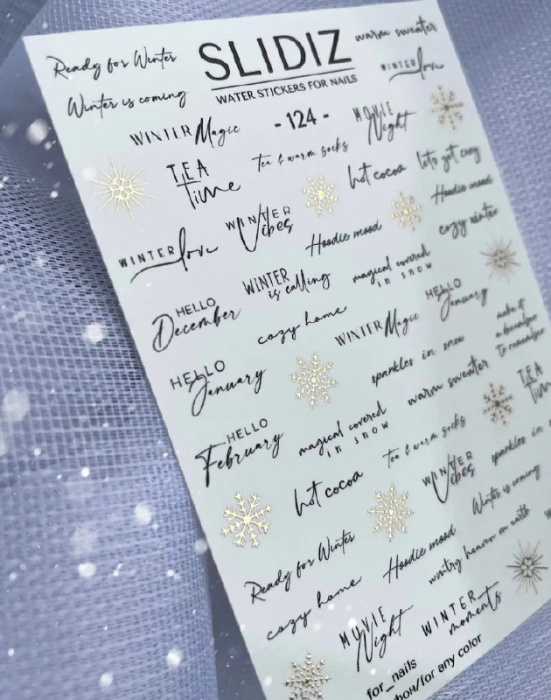 Ready for Winter
SLIDIZ
warm sweater
Winter is coming
WATER STICKERS FOR NAILS
WINTER love
WINTER Magic
- 124 -
MOVIE
Night
TEA
Time
Tea & warm socks
hot cocoa
let's get cozy
WINTER love
WINTER
Vibes
Hoodie mood
Hoodie mood
cozy winter
HELLO
December
WINTER
is calling
magical covered
in snow
HELLO
January
cozy home
WINTER Magic
make it
a december
to remember
HELLO
January
sparkles in snow
TEA
Time
HELLO
February
magical covered
in snow
warm sweater
hot cocoa
Tea & warm socks
WINTER
Vibes
sparkles in
Ready for Winter
Hoodie mood
Winter is coming
cozy home
wintry heaven on earth
MOVIE
Night
WINTER
moments
for_nails
/for any color